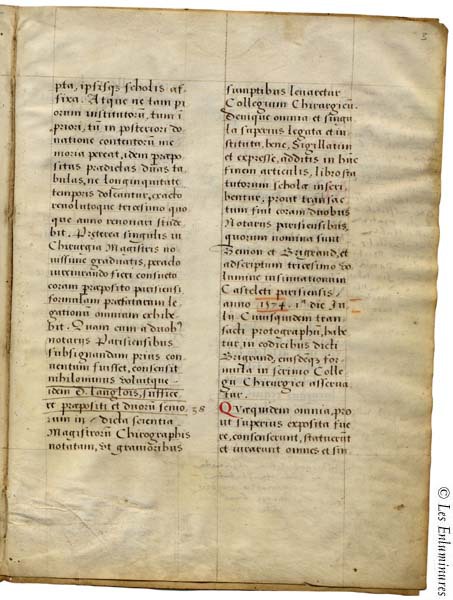 3
pta, ipsisqs scholis af-
fixa. Atque ne tam pi
orum institutorū, tum ī
priori, tū in posteriori do
natione contentorū me
moria pereat, idem præpo
situs prædictas duas ta
bulas, ne longinquitate
temporis doleantur, exacto
revolutoque tricesimo quo
que anno renovari stude
bit. Præterea singulis in
Chirurgia Magistris no
vissime graduatis, peracto
iureiurando fieri consueto
coram præposito parisiensi
formulam præfatarum le
gationū omnium exhibe
bit. Quam cum a duobꝰ
notariis Parisiensibus
subsignandam prius con
ventum fuisset, consensit
nihilominus volutque
idem D. langlois, suffice
re præpositi et duorū senio
rum in dicta scientia
Magistrorū Chirographis
notatam, ut gravioribus
sumptibus levaretur
Collegium Chirurgicū.
Denique omnia et singu
la superius legata et in
stituta, bene, Sigillatim
et expresse, additis in hūc
finem articulis, libro sta
tutorum scholæ inscri
bentur, prout transac
tum fuit coram duobus
Notariis parisiensibus,
quorum nomina sunt
Bemon et Brigrand, et
adscriptum tricesimo vo
lumine insinuationum
Casteleti parisiensis,
anno 1574. 1ª die Iu
ly Cuiusquidem tran
sacti protographū, habe
tur, in codicibus dicti
Brigrand, eiusdēqȝ for
mula in scrinio Colle
gii Chirurgici asserva
tur.
38 Quæquidem omnia, pro
ut superius exposita fue
re, consenserunt, statuerūt
et iuravunt omnes et sin
© Les Enluminures